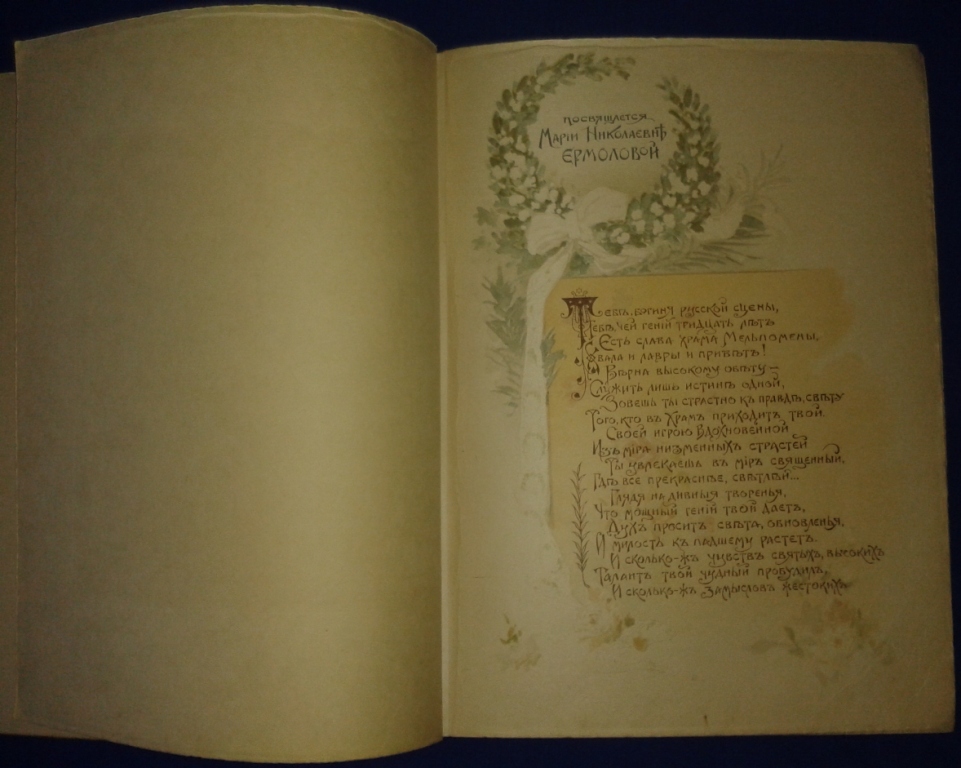 посвящается
Маріи Николаевнѣ
Ермоловой
Тебѣ, богиня русской сцены,
Тебѣ, чей геній тридцать лѣтъ
Есть слава храма Мельпомены,
Хвала и лавры и привѣтъ!
Вѣрна высокому обѣту —
Служить лишь истинѣ одной,
Зовешь ты страстно къ правдѣ, свѣту
Того, кто въ храмъ приходитъ твой.
Своей игрою вдохновенной
Изъ міра низменныхъ страстей
Ты увлекаешь въ міръ священный,
Гдѣ все прекраснѣе, свѣтлѣй...
Глядя на дивныя творенья,
Что мощный геній твой даетъ,
Духъ проситъ свѣта, обновленья,
И милость къ падшему растетъ.
И сколько-жъ чувствъ святыхъ, высокихъ
Талантъ твой чудный пробудилъ,
И сколько-жъ замысловъ жестокихъ